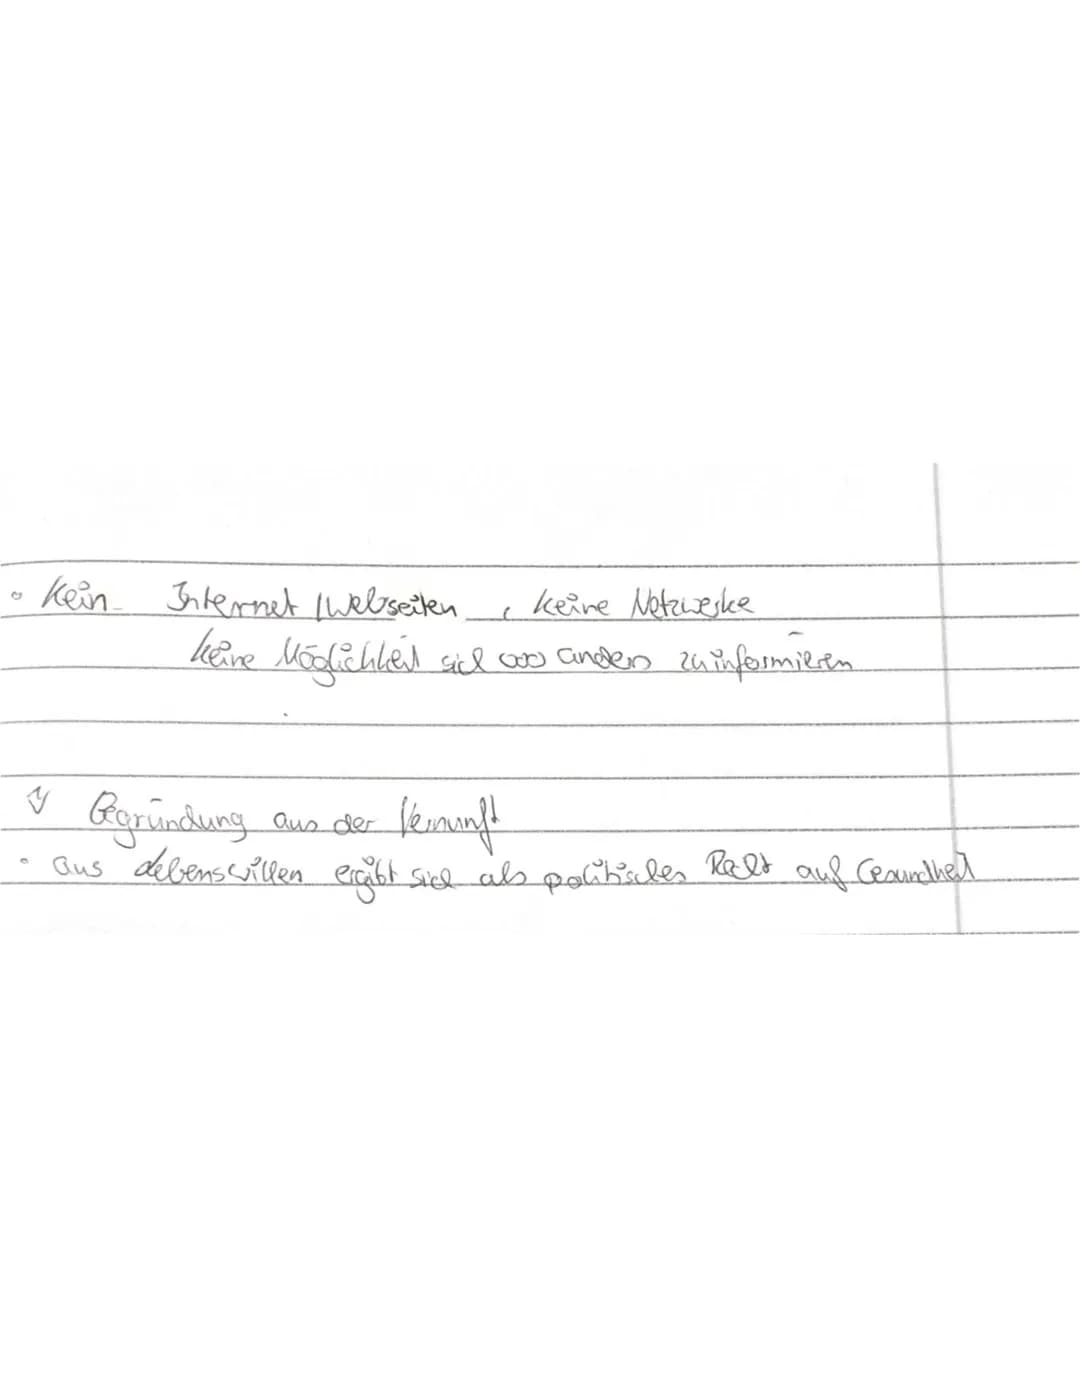 • Kein Internet / Webseiten, keine Netzwerke
keine Möglichkeit sich anders zu informieren
Begründung aus der Vernunft
• aus Lebenswillen ergibt sich als politisches Recht auf Gesundheit